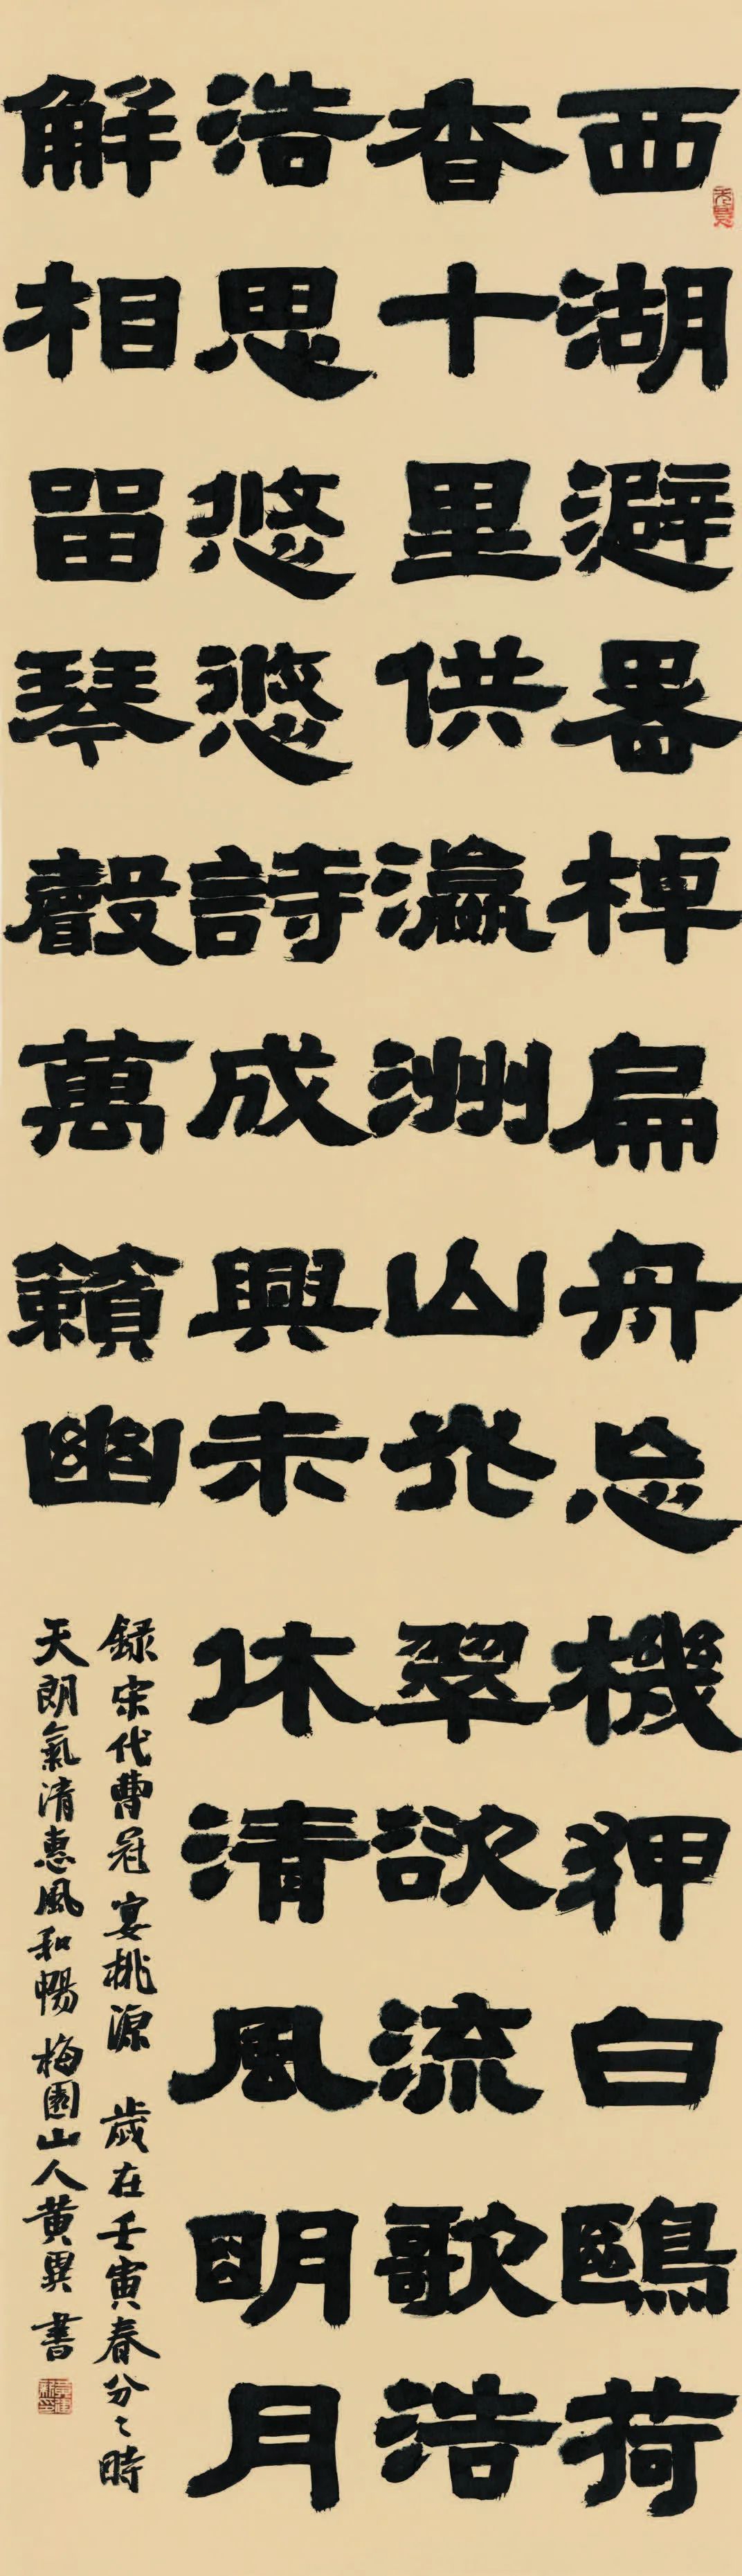 西湖避暑棹扁舟忘機狎白鷗荷
香十里供瀛洲山光翠欲流歌浩
浩思悠悠詩成興未休清風明月
解相留琴聲萬籟幽
録宋代曹冠宴桃源 歲在壬寅春分之時
天朗氣清惠風和暢 梅園山人黄異書